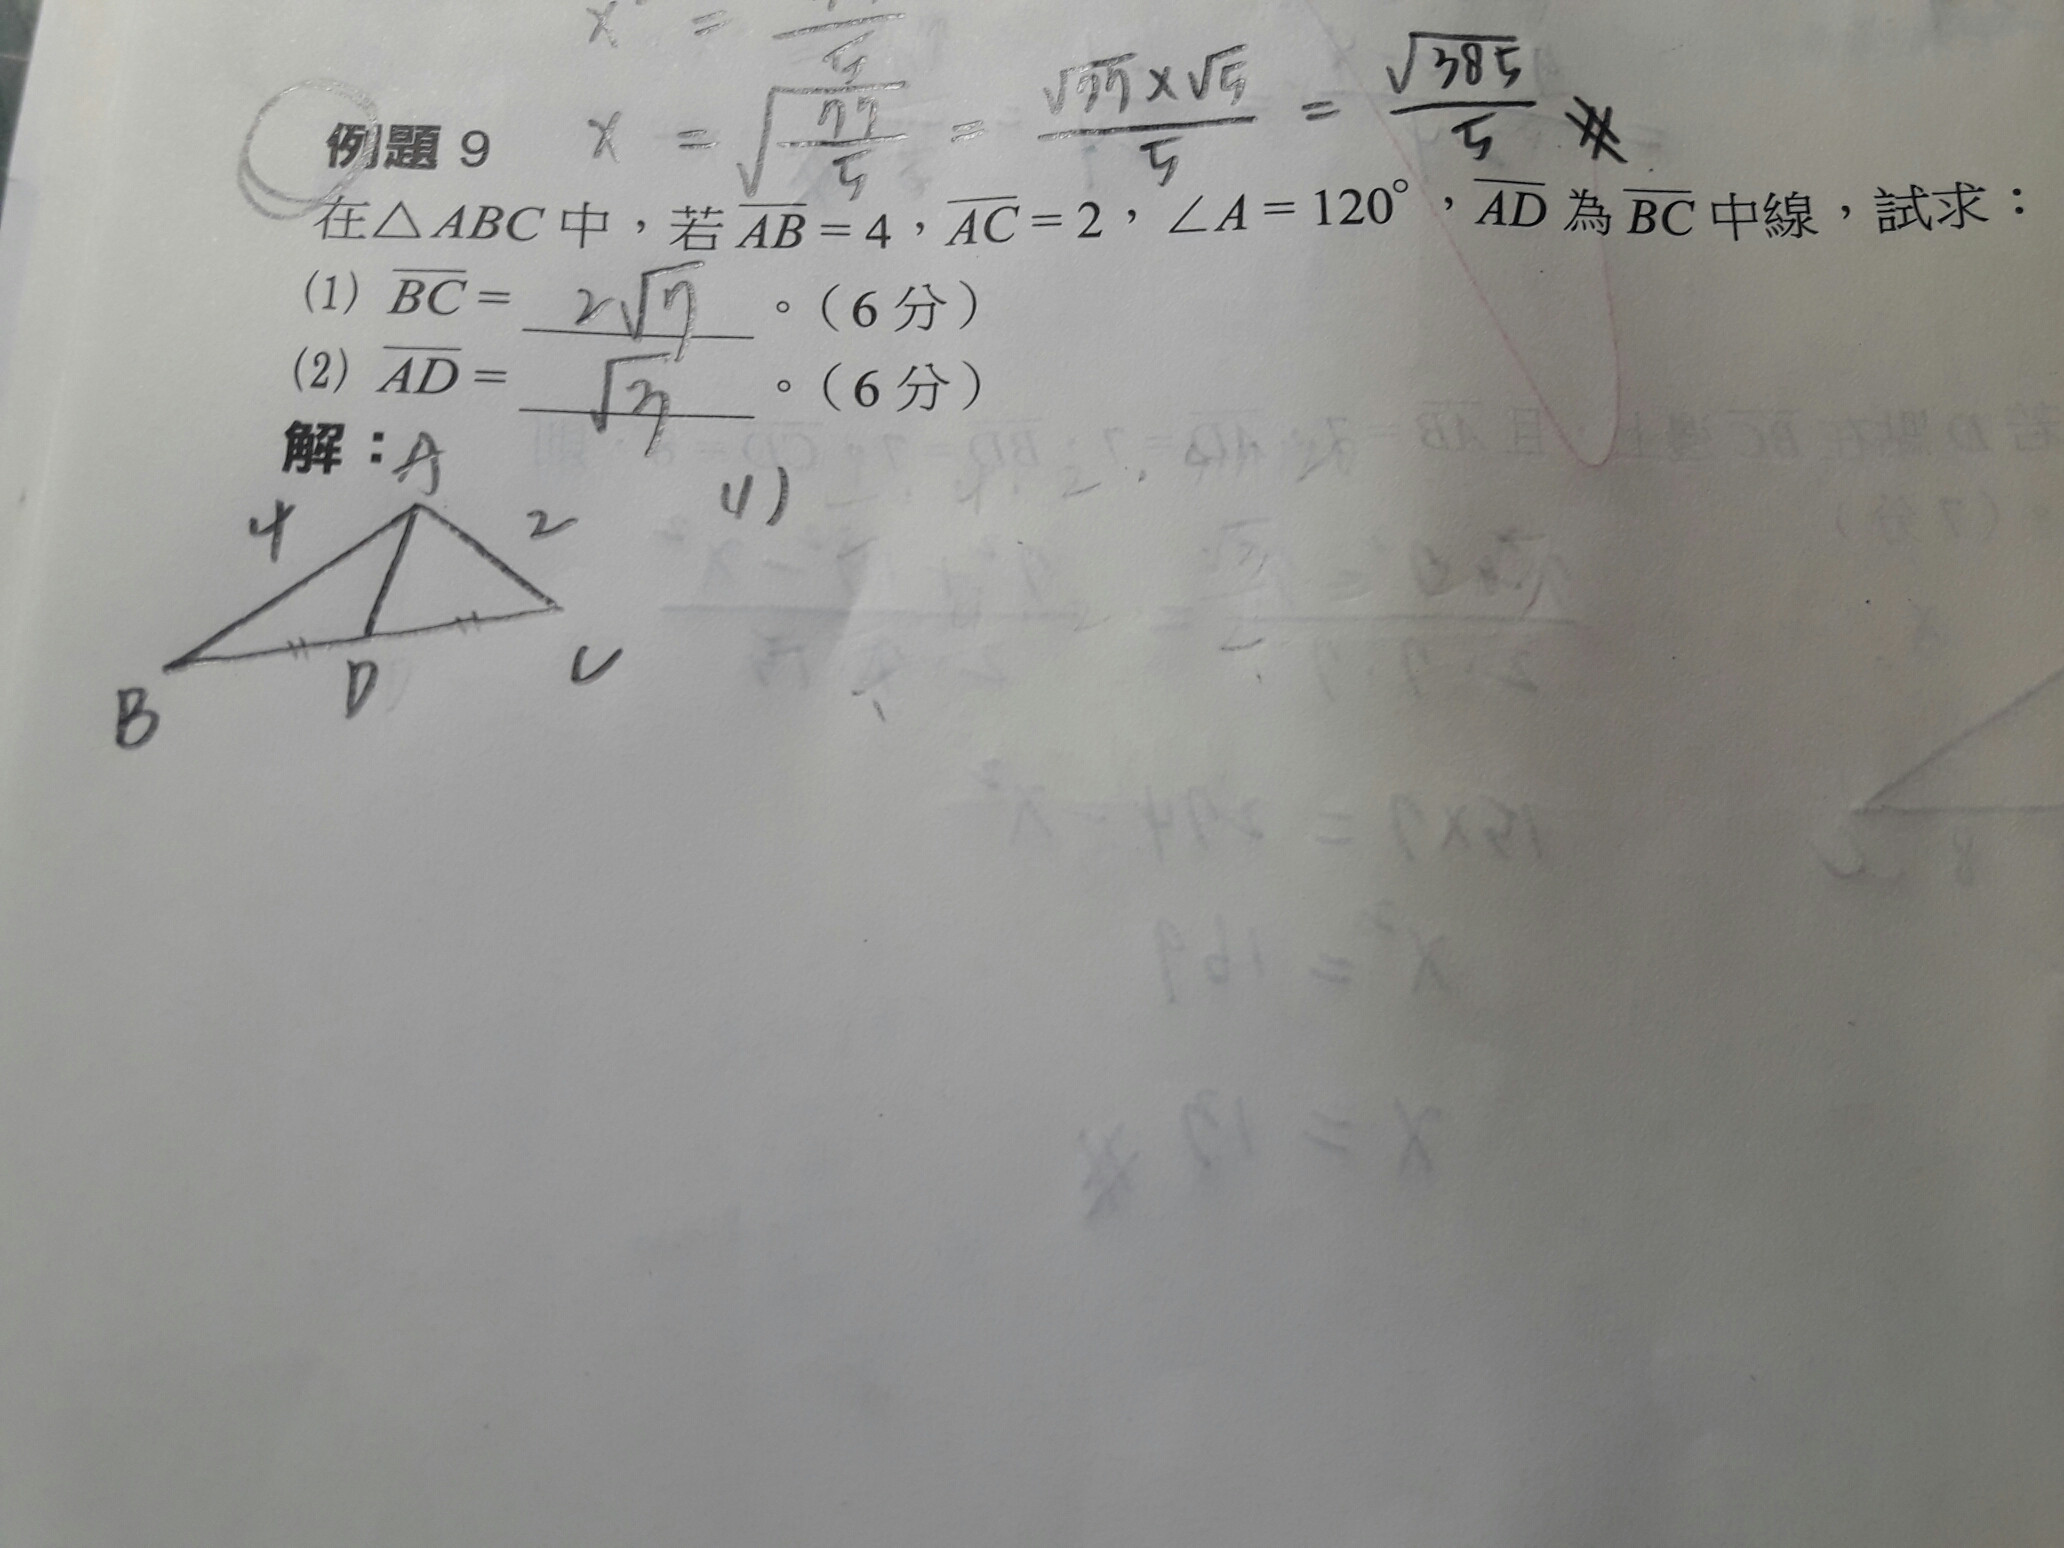 x² =
5
x = √(77/5) = (√77 × √5)/5 = √385/5 ※
例題 9
在△ABC 中，若 AB = 4，AC = 2，∠A = 120°，AD 為 BC 中線，試求：
(1) BC = 2√7 。（6 分）
(2) AD = √3 。（6 分）
解：
A
4 2
B D C
(1)